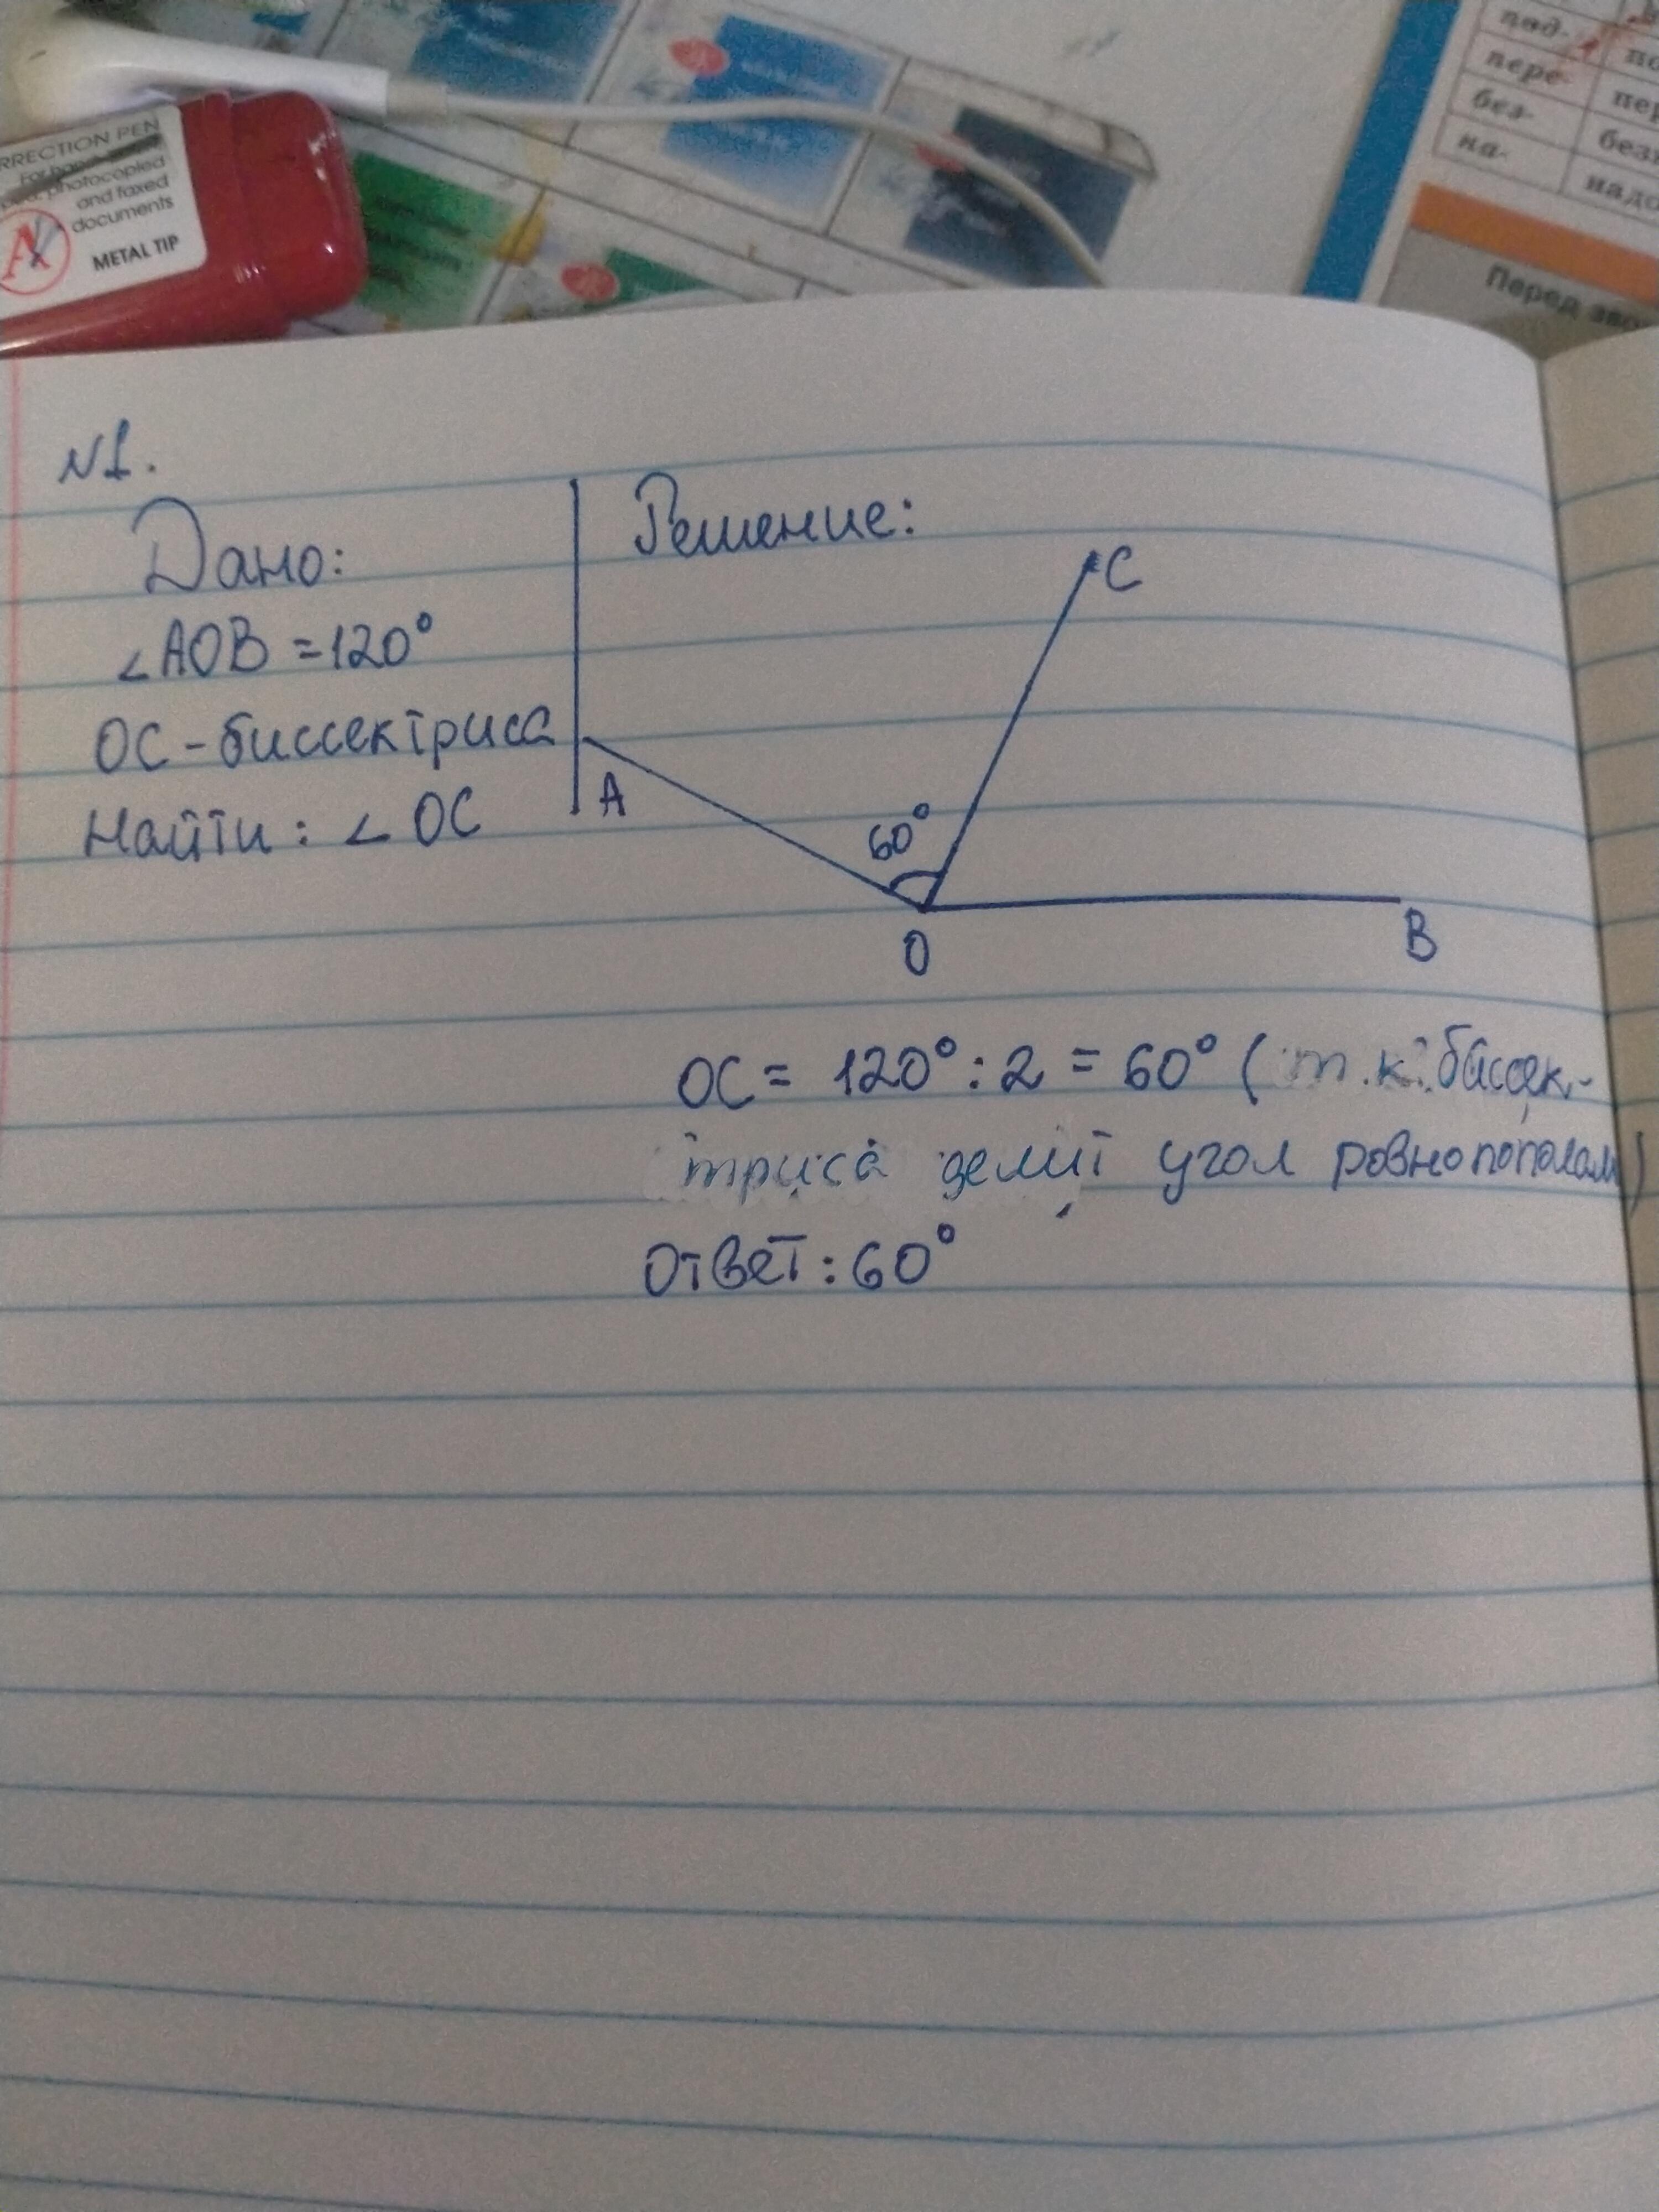 RRECTION PEN
photocopied
and faxed
documents
METAL TIP
под-
пере-
без-
на-
Перед
N1.
Дано:
∠AOB = 120°
OC - биссектриса
Найти: ∠ OC
Решение:
C
A
60°
O
B
OC = 120° : 2 = 60° ( т.к. биссек-
триса делит угол ровно пополам)
Ответ: 60°